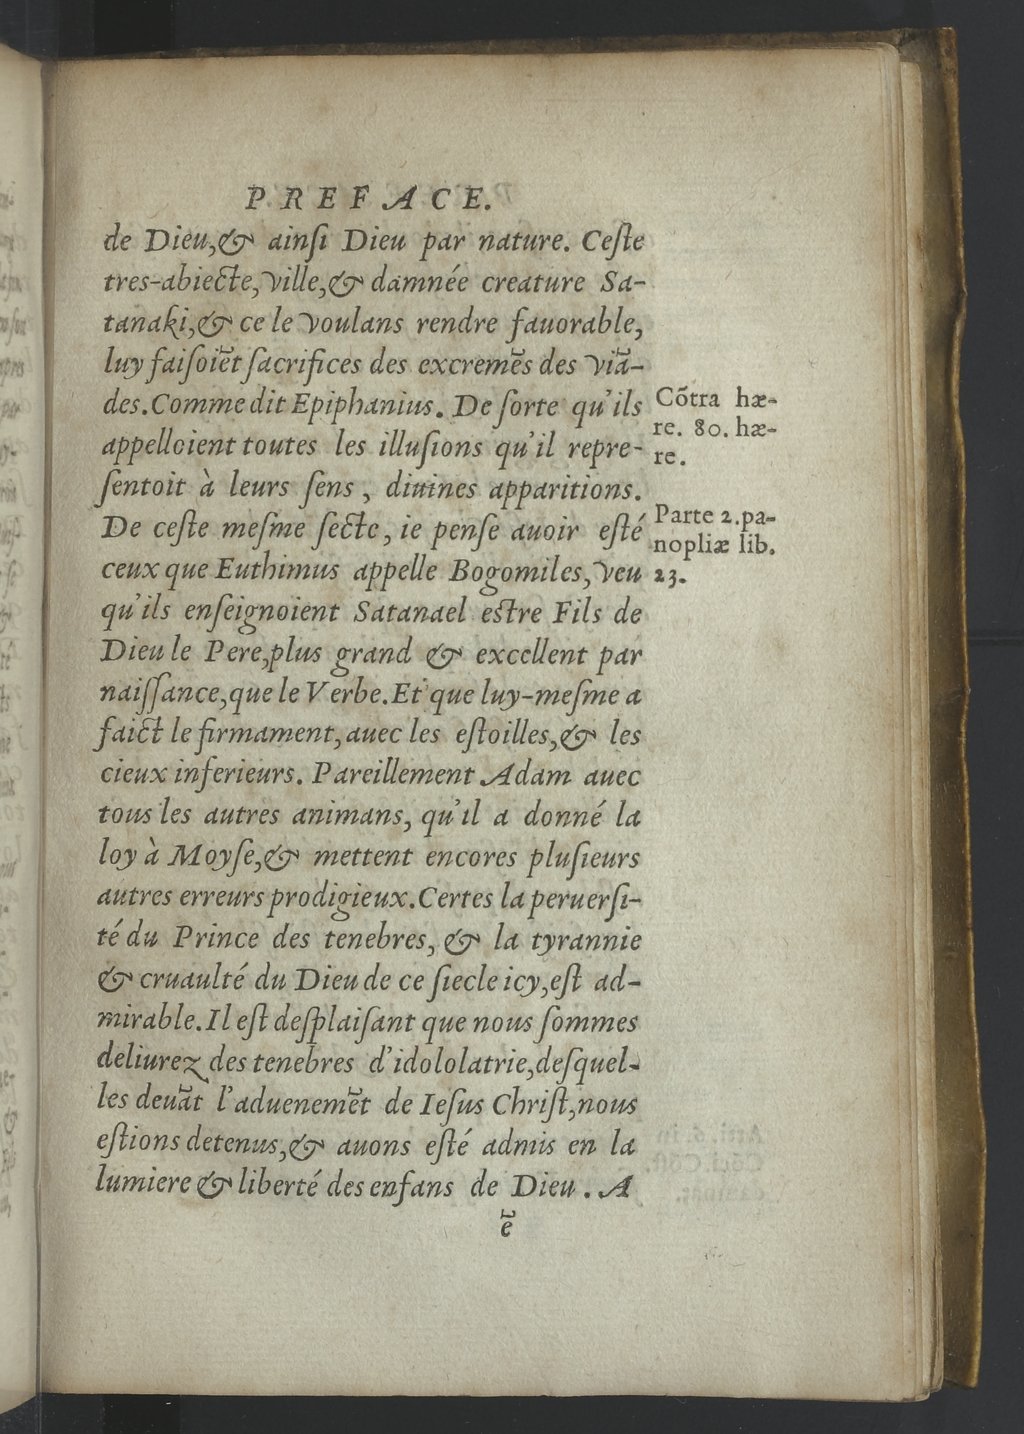 PREFACE.
de Dieu,& ainſi Dieu par nature. Ceſte
tres-abiecte, ville,& damnée creature Sa-
tanaki,& ce le voulans rendre fauorable,
luy faiſoiẽt ſacrifices des excremẽs des viã-
des.Comme dit Epiphanius. De ſorte qu'ils
appelloient toutes les illuſions qu'il repre-
ſentoit à leurs ſens , diuines apparitions.
De ceſte meſme ſecte, ie penſe auoir eſté
ceux que Euthimus appelle Bogomiles, veu
qu'ils enſeignoient Satanael eſtre Fils de
Dieu le Pere,plus grand & excellent par
naiſſance,que le Verbe.Et que luy-meſme a
faict le firmament, auec les eſtoilles,& les
cieux inferieurs. Pareillement Adam auec
tous les autres animans, qu'il a donné la
loy à Moyſe,& mettent encores pluſieurs
autres erreurs prodigieux.Certes la peruerſi-
té du Prince des tenebres, & la tyrannie
& cruaulté du Dieu de ce ſiecle icy,eſt ad-
mirable.Il eſt deſplaiſant que nous ſommes
deliurez des tenebres d'idololatrie,deſquel-
les deuãt l'aduenemẽt de Ieſus Chriſt,nous
eſtions detenus,& auons eſté admis en la
lumiere & liberté des enfans de Dieu . A
ẽ
Cõtra hæ-
re. 80. hæ-
re.
Parte 2.pa-
nopliæ lib.
23.